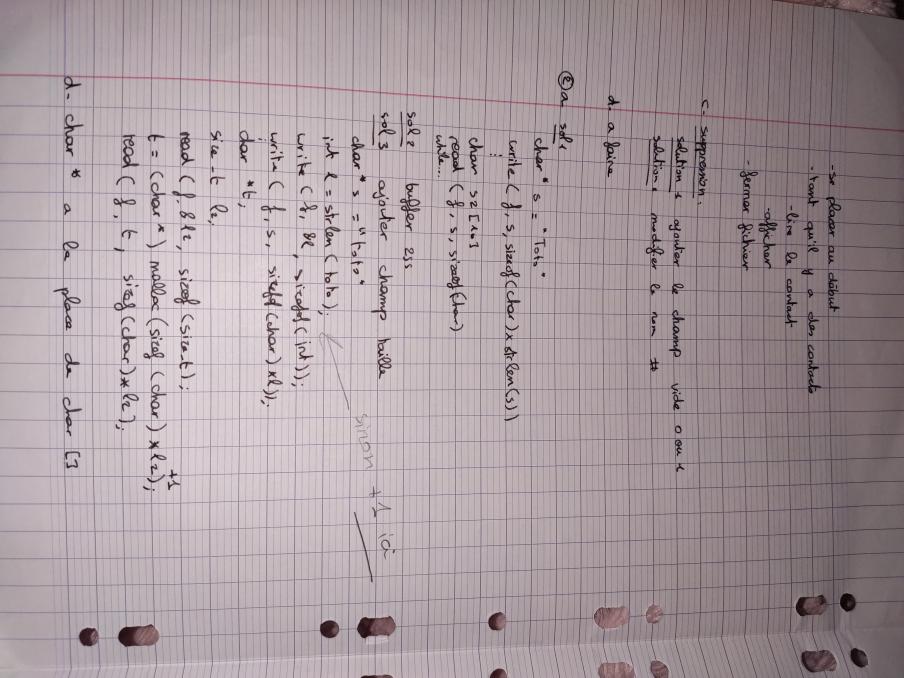 -se placer au début
-tant qu'il y a des contacts
-lire le contact
-afficher
- fermer fichier
c- suppression.
solution 1 ajouter le champ vide 0 ou 1
solution 2 modifier le nom #
d. a faire
② a sol 1
char* s = "Toto"
write (f, s, sizeof(char) x strlen(s))
⋮
char s2 [10]
read (f, s, sizeof(char)
while...
sol 2 buffer 255
sol 3 ajouter champ taille
sinon +1 ici
char* s = "toto"
int l = strlen (toto);
write (f, &l, sizeof(int));
write ( f, s, sizeof (char) *l));
⋮
char *t;
size_t l2;
read (f, &l2, sizeof (size_t);
+1
t = (char*) malloc (sizeof (char) * l2);
read (f, t, sizeof(char)* l2);
d- char * a la place de char []